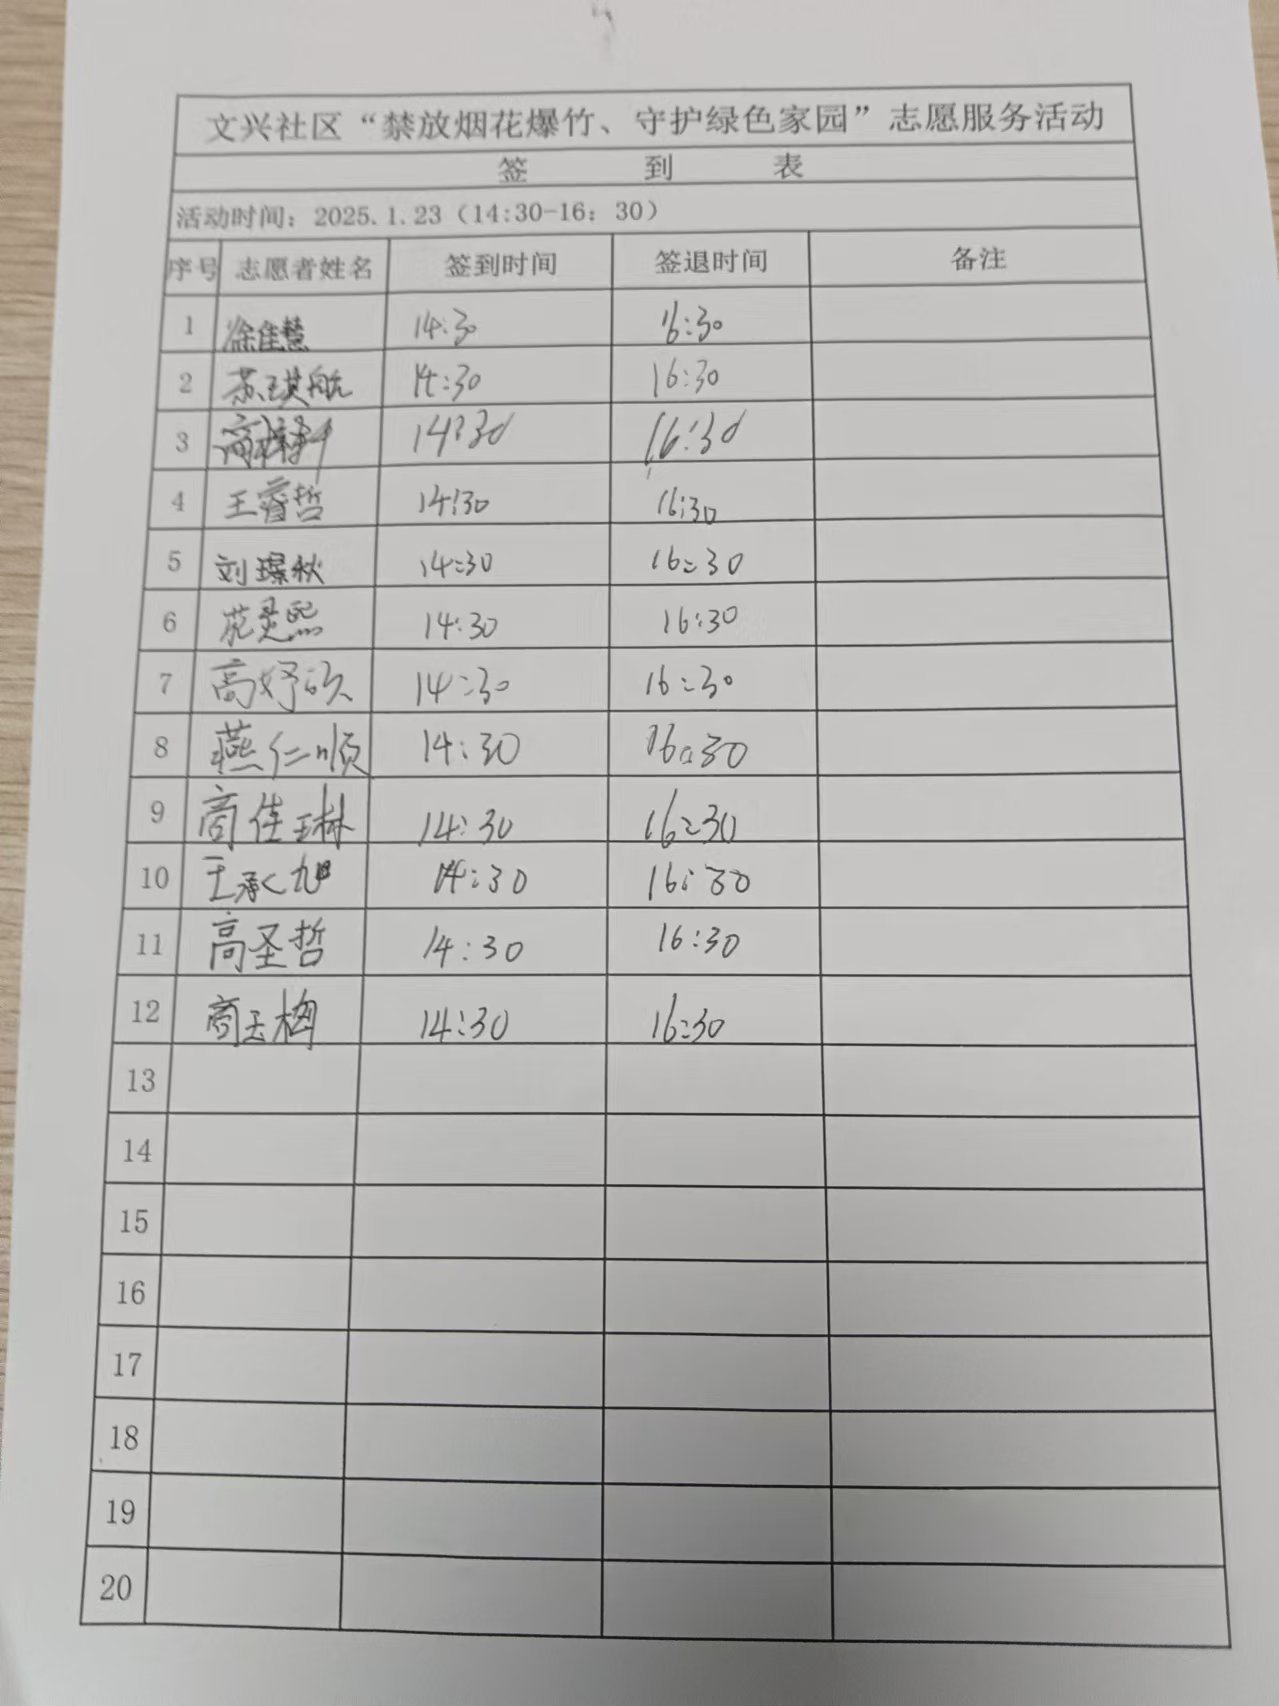 文兴社区“禁放烟花爆竹、守护绿色家园”志愿服务活动
签 到 表
活动时间：2025.1.23（14:30-16：30）
序号 志愿者姓名 签到时间 签退时间 备注
1 徐佳慧 14:30 16:30
2 苏琪航 14:30 16:30
3 14:30 16:30
4 王睿哲 14:30 16:30
5 刘璟秋 14:30 16:30
6 范灵熙 14:30 16:30
7 高妤欣 14:30 16:30
8 燕仁顺 14:30 16:30
9 商佳琳 14:30 16:30
10 王承旭 14:30 16:30
11 高圣哲 14:30 16:30
12 商玉梅 14:30 16:30
13
14
15
16
17
18
19
20